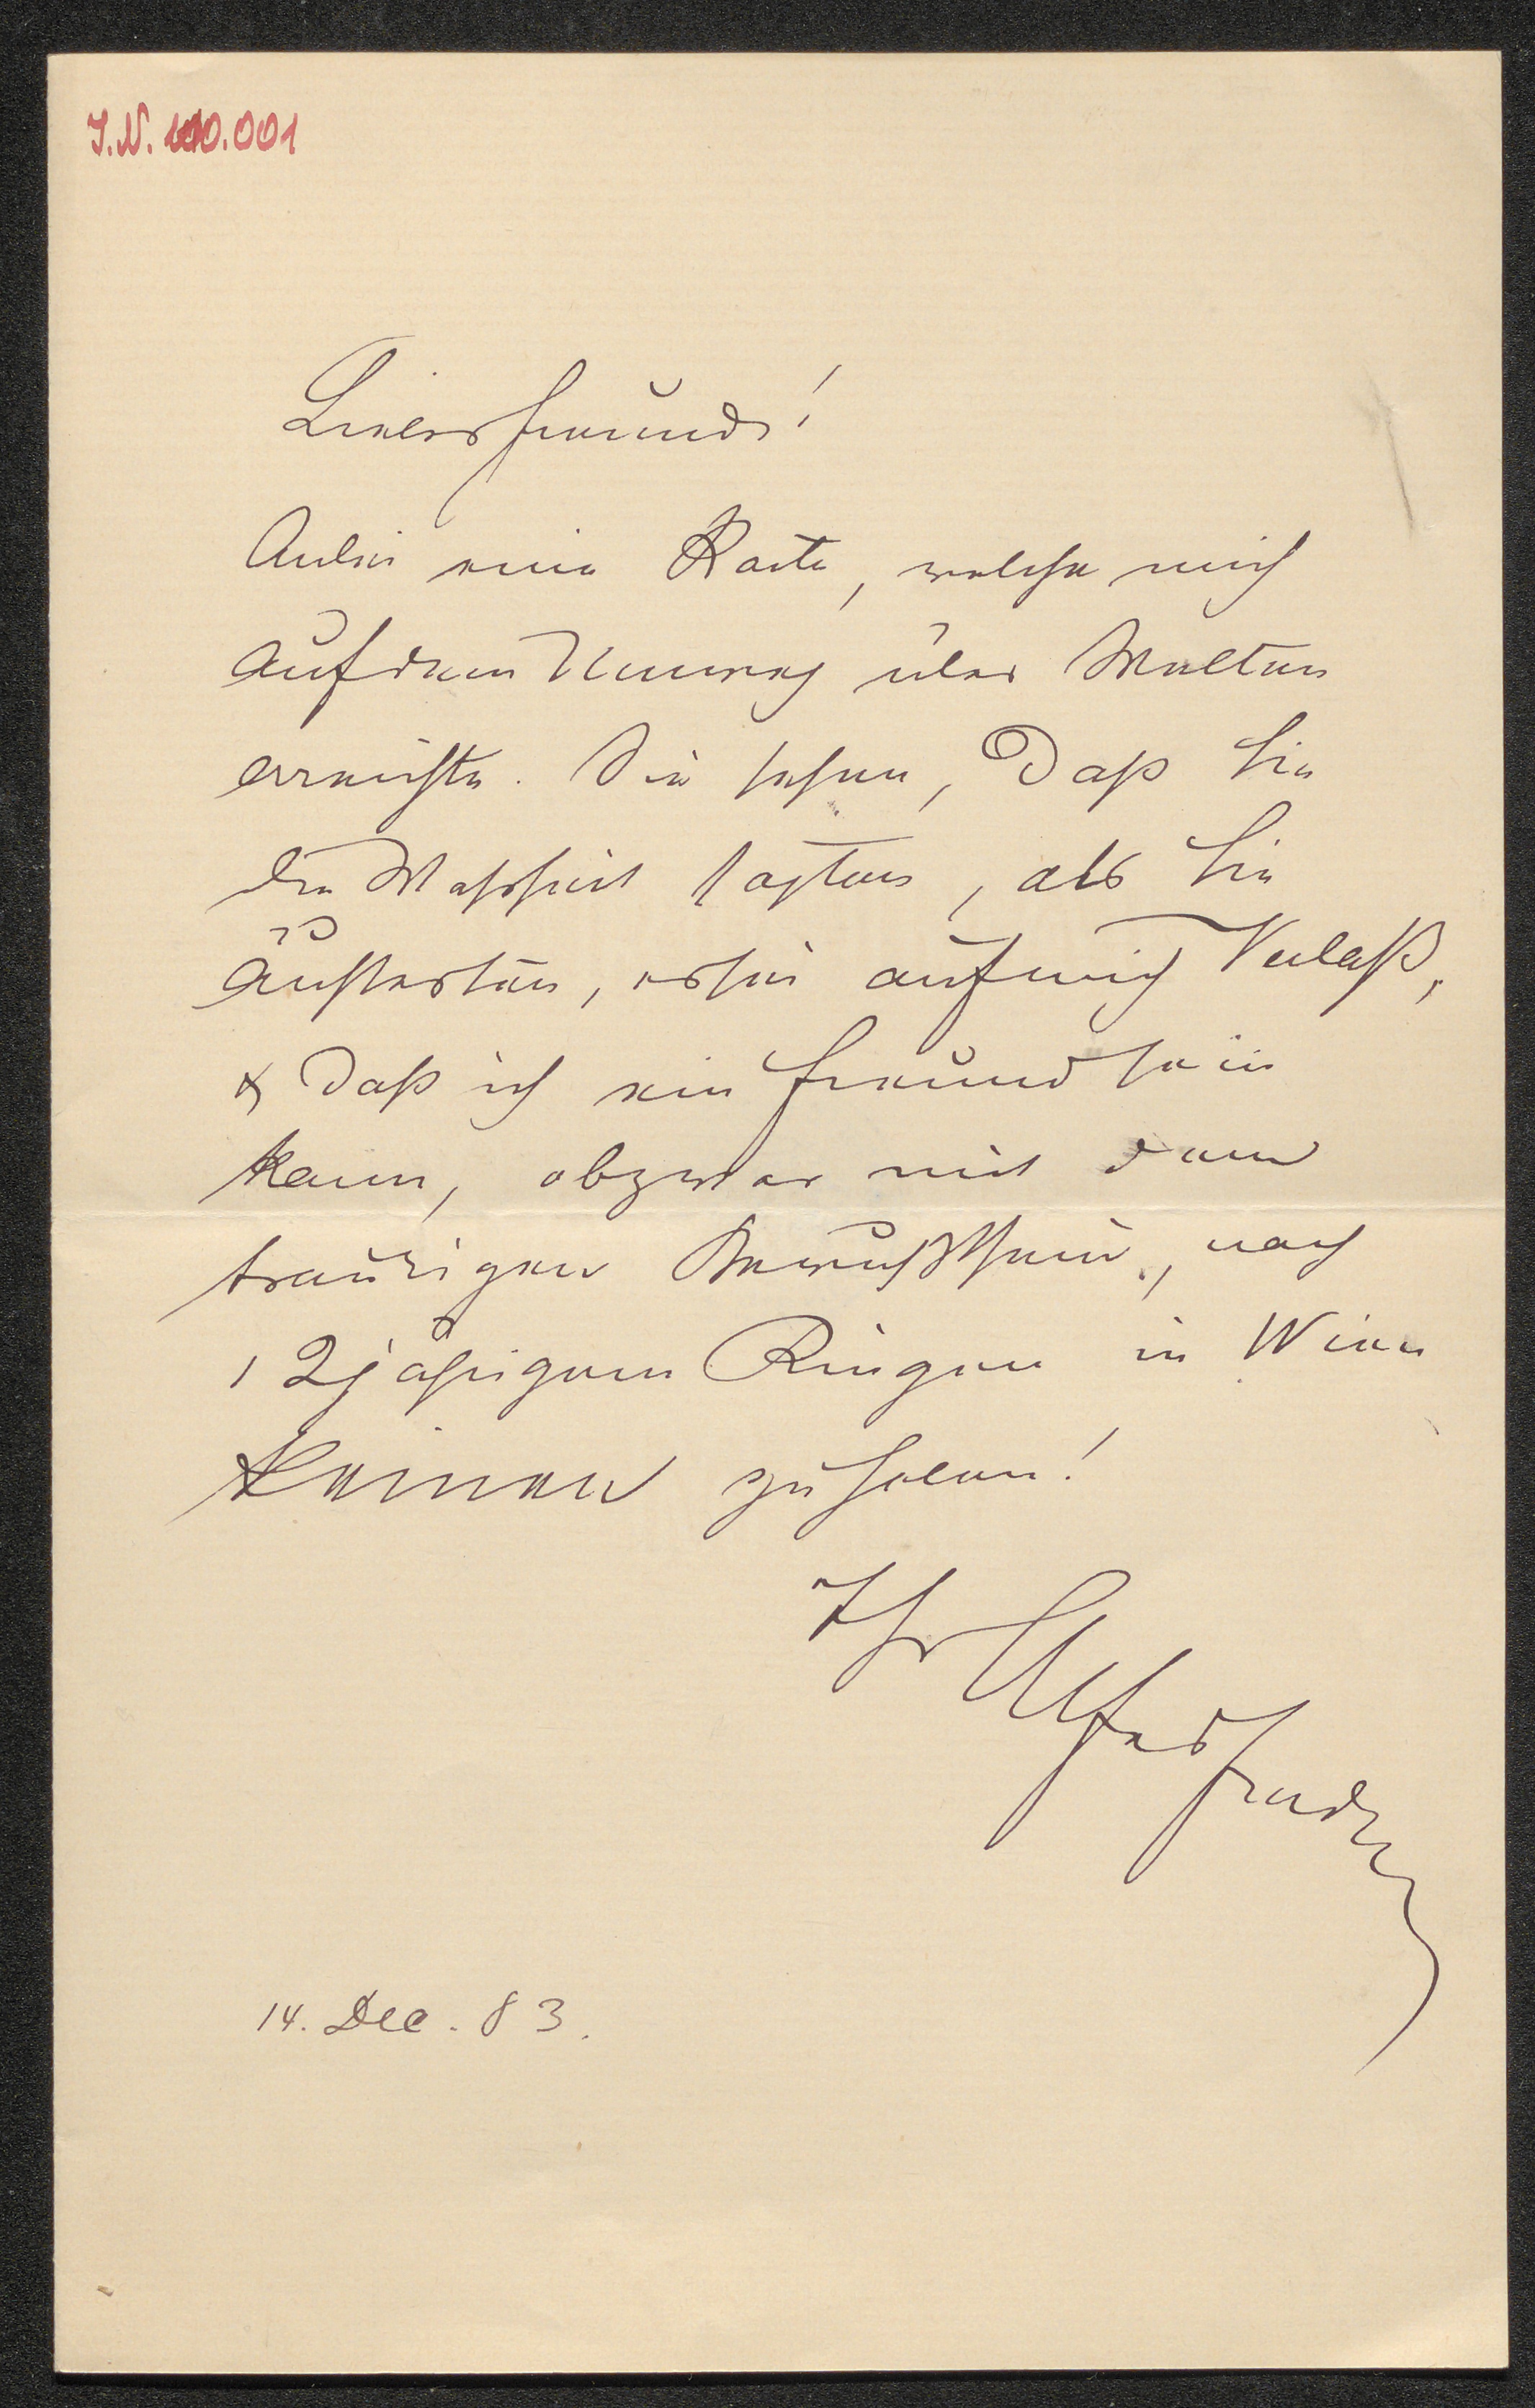 I.N. 100.001
Lieber Freund!
Anbei eine Karte, welche mich
auf dem Umweg über Meltem
erreichte. Sie sehen, daß Sie
die Wahrheit sagten, als Sie
äußerten, es sei auf mich Verlaß,
& daß ich ein Freund sein
kann, obzwar mit dem
traurigen Bewußtsein, nach
12jährigem Ringen in Wien
keinen zu haben!
Ihr
14. Dec. 83.